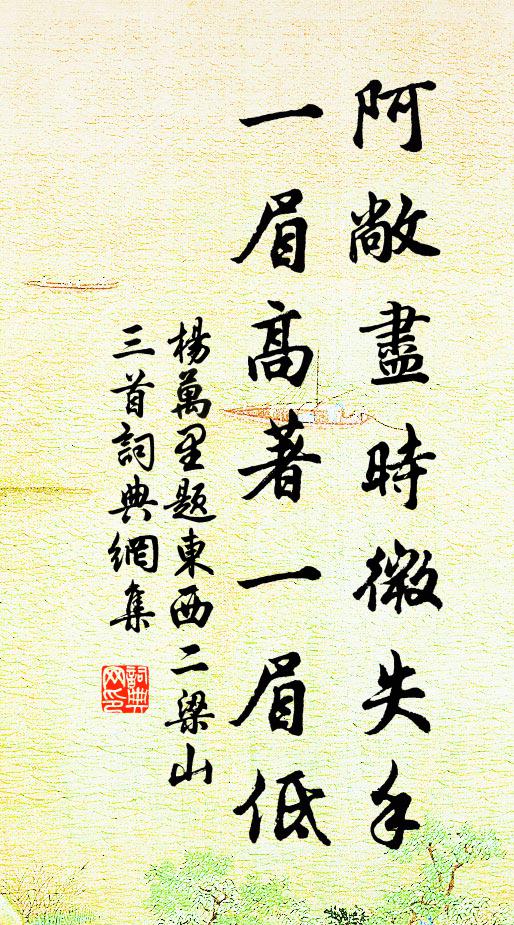 阿敞盡時微失手
一眉高著一眉低
楊萬里題東西二梁山
三首詞典網集
詞典
网印